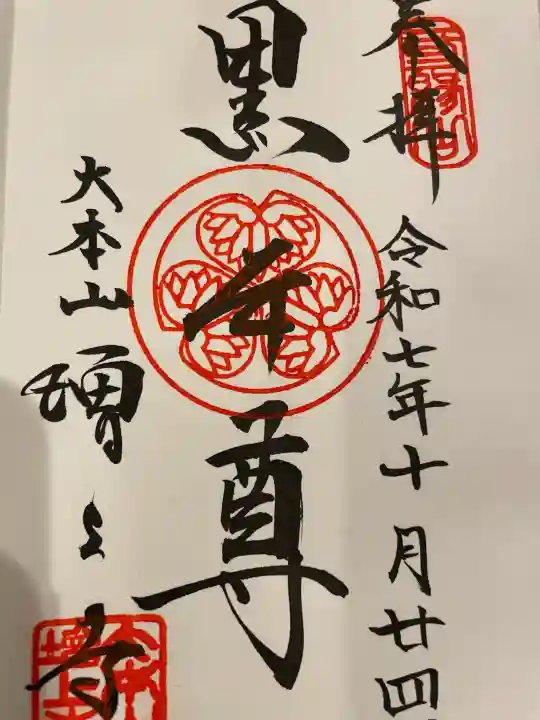 奉拝
令和七年十月廿四
黒本尊
大本山増上寺